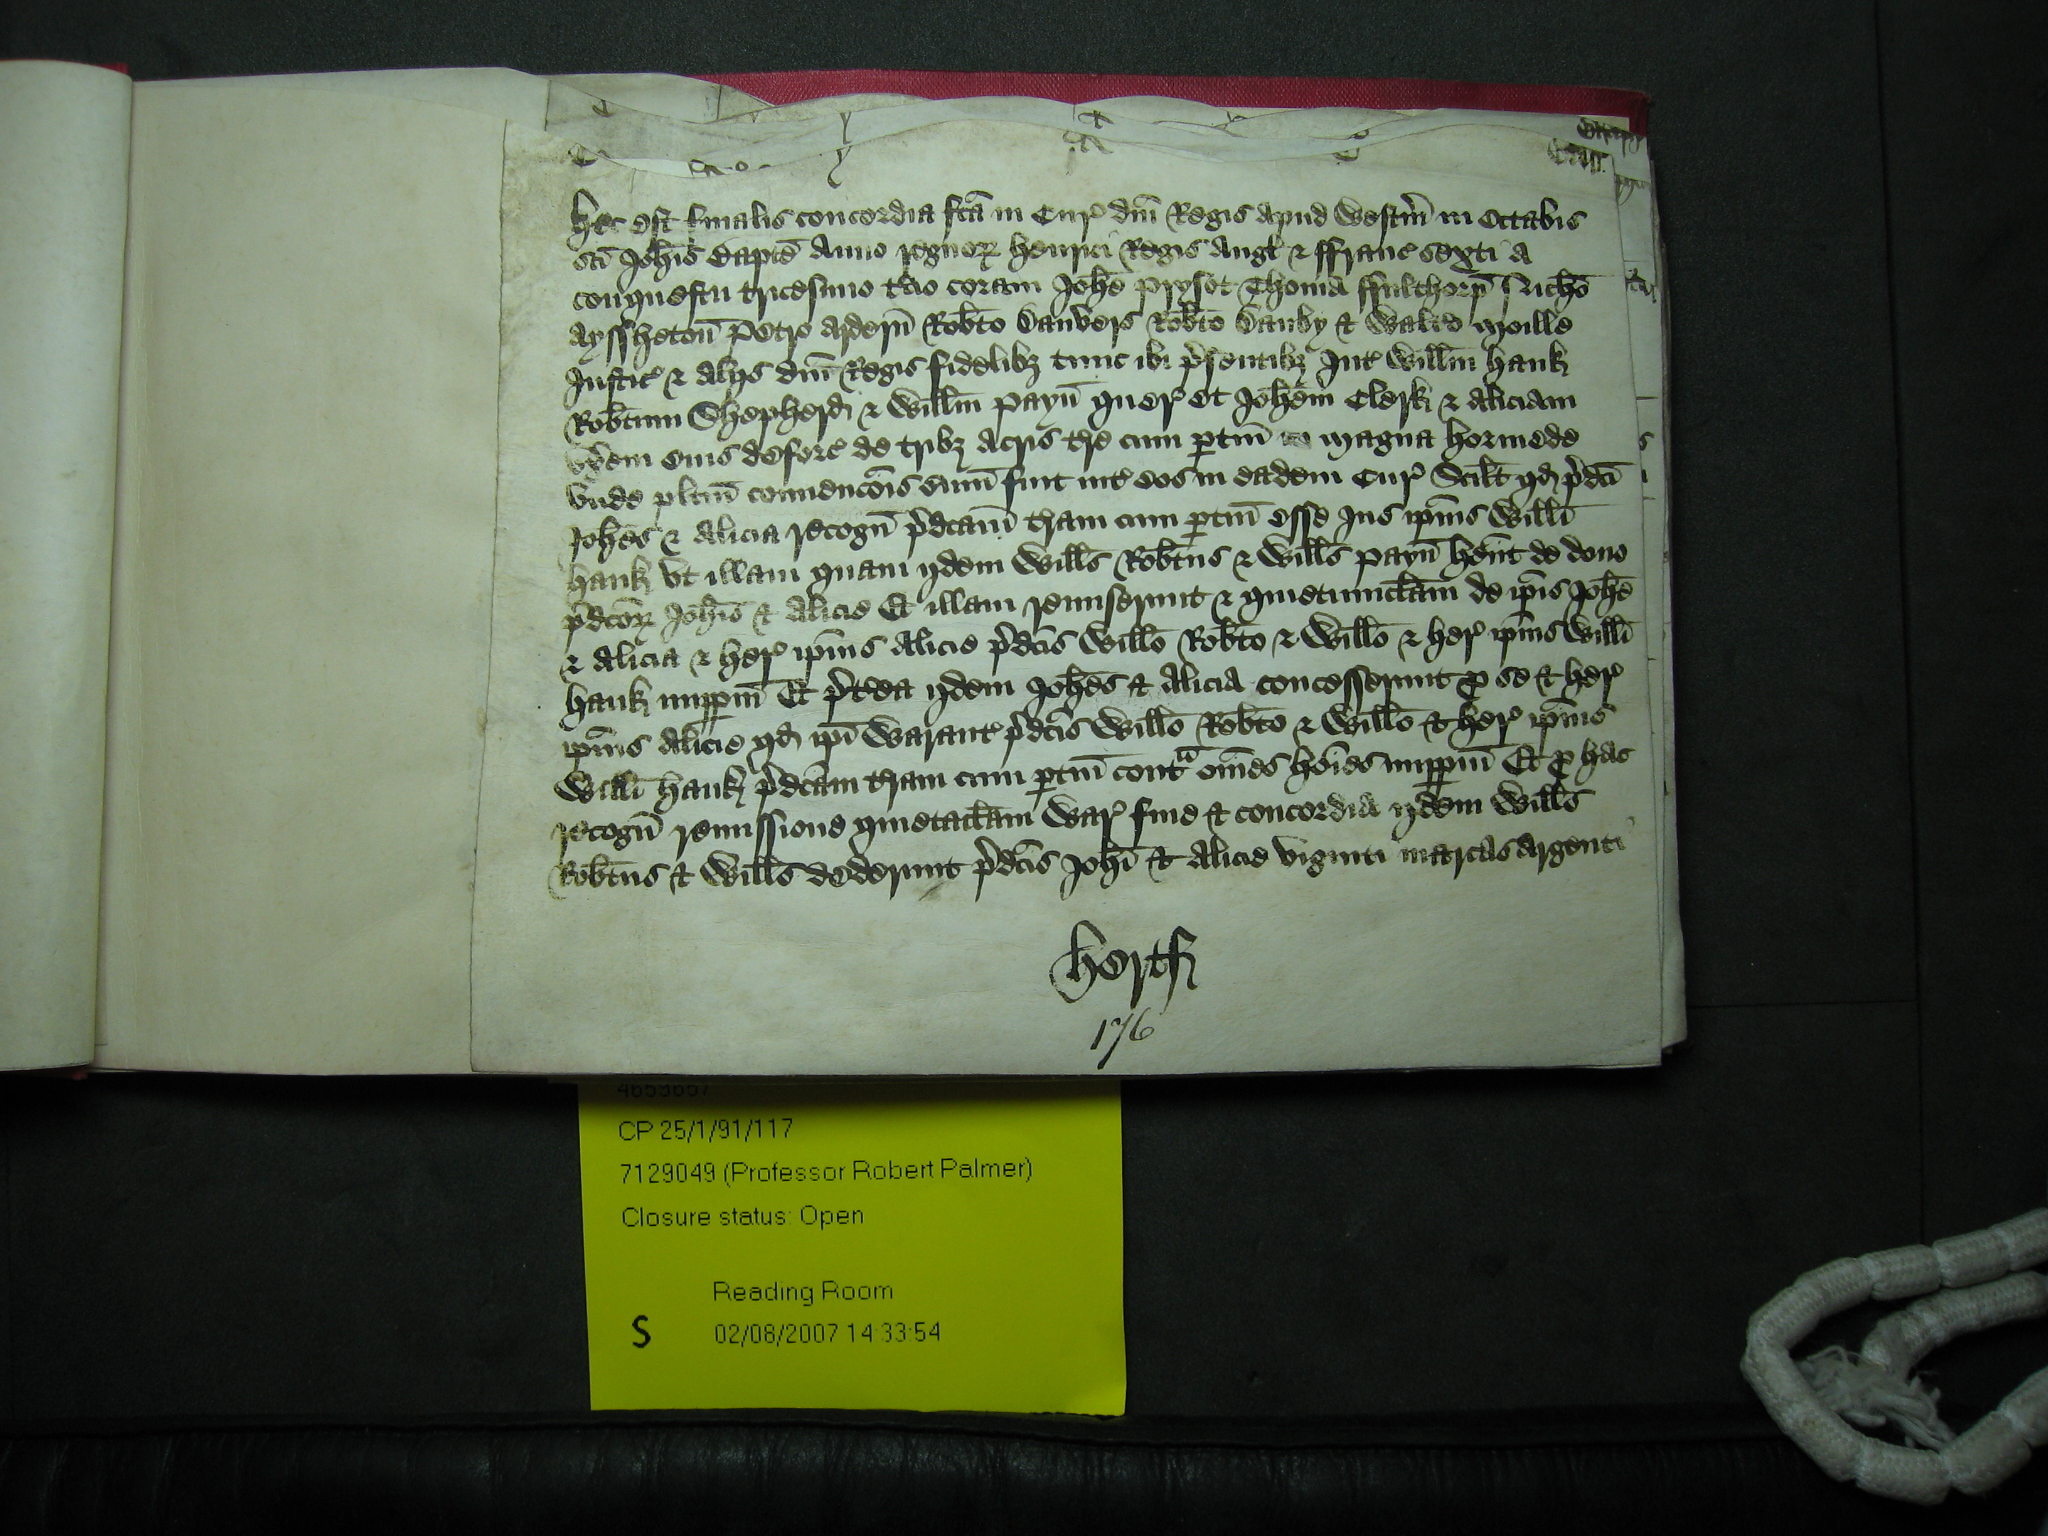 Hec est finalis concordia fc̄a in Cur̉ dn̄i Regis apud Westm̄ in Octabis
Sc̄i Joh̄is Bapt̄e Anno regnoꝝ Henrici Regis Angl̉ & ffranc̉ sexti a
conquestu tricesimo t̉cio coram Joh̄e Prysot Thoma ffulthorp̄ Nich̄o
Ayssheton̄ Petro Ardern̄ Rob̄to Danvers Rob̄to Danby & Walt̉o Moille
Justic̉ & Alijs dn̄i Regis fidelibꝫ tunc ibi p̉sentibꝫ Int̉ Will̄m Hank
Rob̄tum Shepherd & Will̄m Payn̄ quer̉ et Joh̄em Clerk & Aliciam
ux̉em eius deforc̉ de tribꝫ acris t̉re cum ꝑtin̄ in magna Hormede
Unde pl̄itm̄ conuenc̄ois sum̄ fuit int̉ eos in eadem Cur̉ Scil̄t qd̄ p̉dc̄i
Joh̄es & Alicia recogn̄ p̉dc̄am t̉ram cum ꝑtin̄ esse Jus ip̄ius Will̄i
Hank ut illam quam ijdem Will̄s Rob̄tus & Will̄s Payn̄ h̄ent de dono
p̉dc̄oꝝ Joh̄is & Alicie Et illam remiserunt & quietumclam̄ de ip̄is Joh̄e
& Alicia & her̉ ip̄ius Alicie p̉dc̄is Will̄o Rob̄to & Will̄o & her̉ ip̄ius Will̄i
Hank imꝑpm̄ Et p̉t̉ea ijdem Joh̄es & Alicia concesserunt ꝓ se & her̉
ip̄ius Alicie qd̄ ip̄i Warant̉ p̉dc̄is Will̄o Rob̄to & Will̄o & her̉ ip̄ius
Will̄i Hank p̉dc̄am t̉ram cum ꝑtin̄ contᵃ om̄es ho̅ies imꝑpm̄ Et ꝓ hac
recogn̄ remissione quietaclam̄ War̉ fine & concordia ijdem Will̄s
Rob̄tus & Will̄s dederunt p̉dc̄is Joh̄i & Alicie viginti marcas argenti
Hertf
176
CP 25/1/91/117
7129049 (Professor Robert Palmer)
Closure status: Open
Reading Room
S 02/08/2007 14:33:54